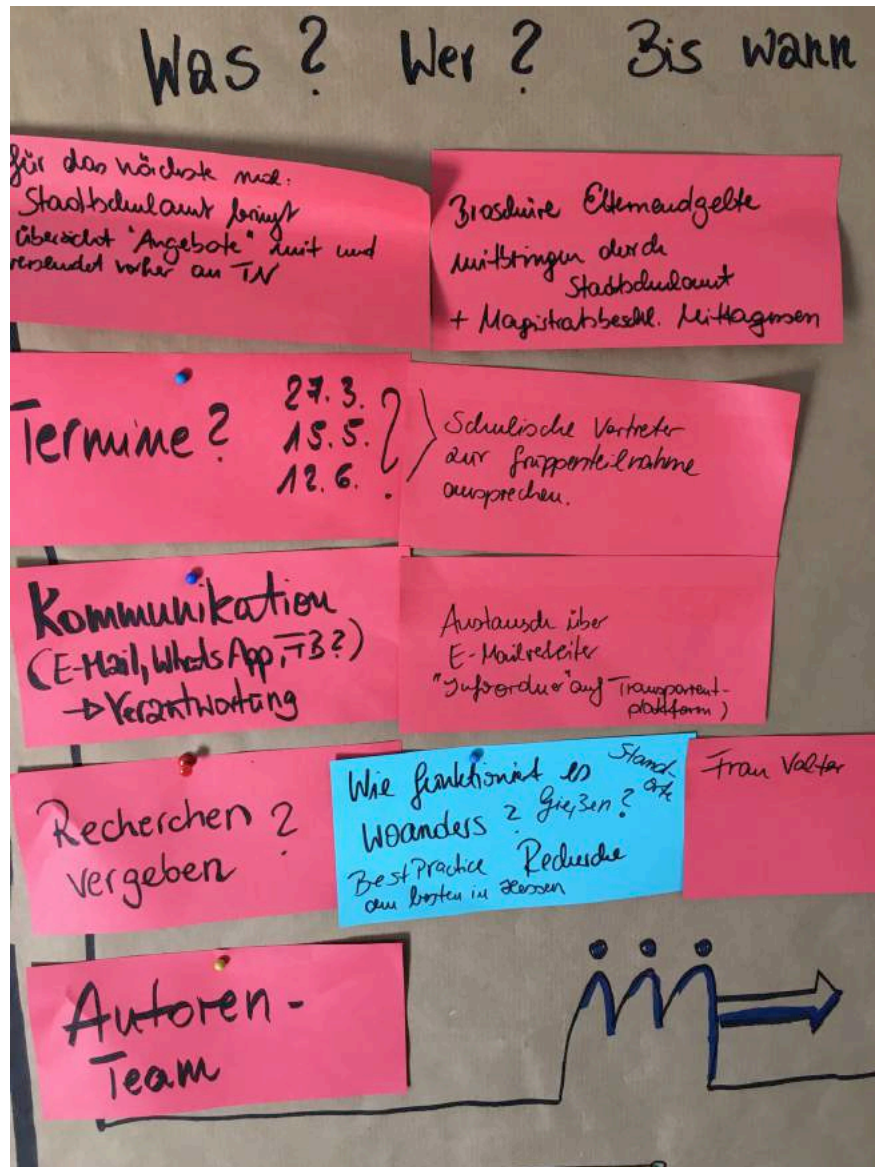 Was? Wer? Bis wann
für das nächste mal:
Stadtschulamt bringt
übersicht "Angebote" mit und
versendet vorher an TN
Broschüre Elternendgelte
mitbringen durch
Stadtschulamt
+ Magistratsbeschl. Mittagessen
Termine?
27.3.
15.5.
12.6.
?
Schulische Vertreter
zur Gruppenteilnahme
ansprechen.
Kommunikation
(E-Mail, WhatsApp, TB?)
→ Verantwortung
Austausch über
E-Mailverteiler
"Infoordner" auf Transparent-
plattform)
Recherchen?
vergeben
Wie funktioniert es
Woanders? Gießen?
Standorte
Best Practice Recherche
am besten in Hessen
Frau Valter
Autoren-
Team